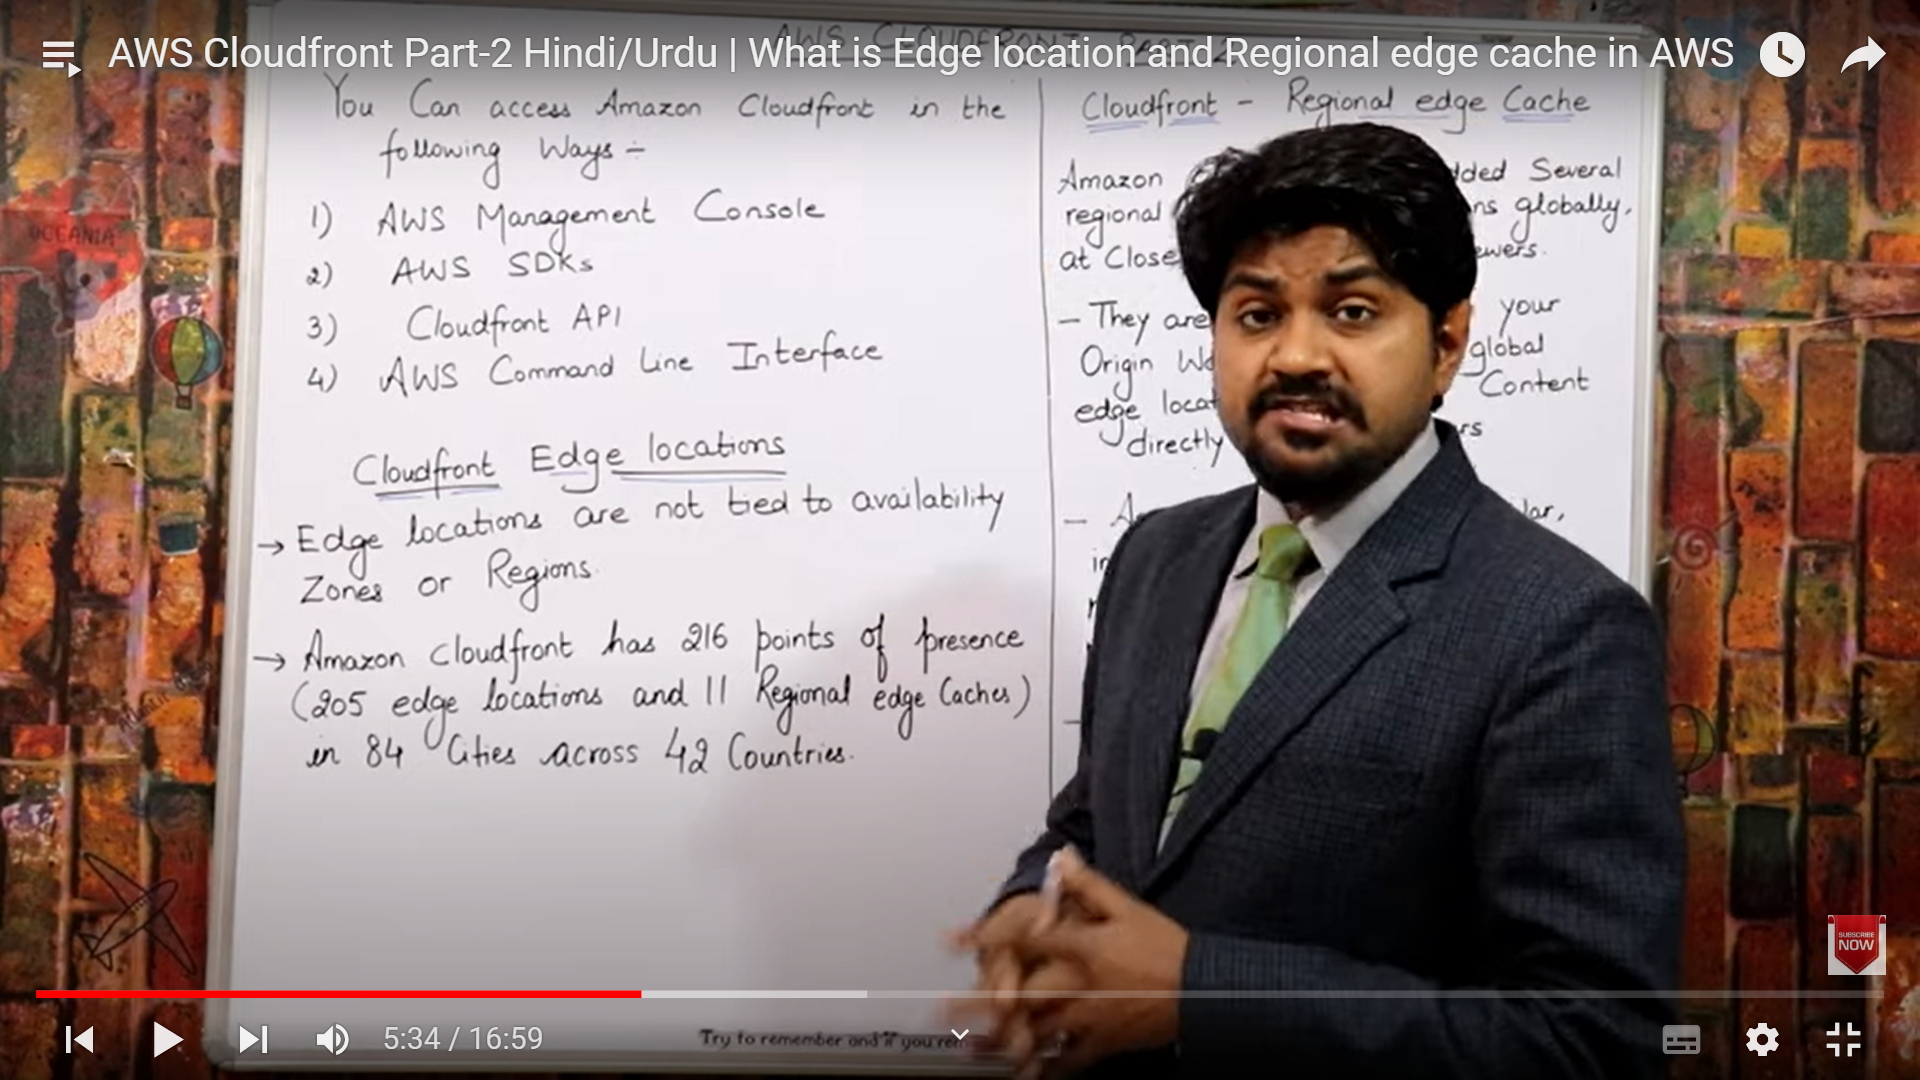 AWS Cloudfront Part-2 Hindi/Urdu | What is Edge location and Regional edge cache in AWS
AWS CLOUDFRONT PART 2
You Can access Amazon Cloudfront in the
following Ways :-
1) AWS Management Console
2) AWS SDKs
3) Cloudfront API
4) AWS Command Line Interface
Cloudfront Edge locations
→ Edge locations are not tied to availability
Zones or Regions.
→ Amazon Cloudfront has 216 points of presence
(205 edge locations and 11 Regional edge Caches)
in 84 Cities across 42 Countries.
Cloudfront - Regional edge Cache
Amazon dded Several
regional ns globally,
at Close ewers.
- They are your
Origin global
edge locat Content
directly rs
lar,
OCEANIA
SUBSCRIBE
NOW
5:34 / 16:59
Try to remember and if you